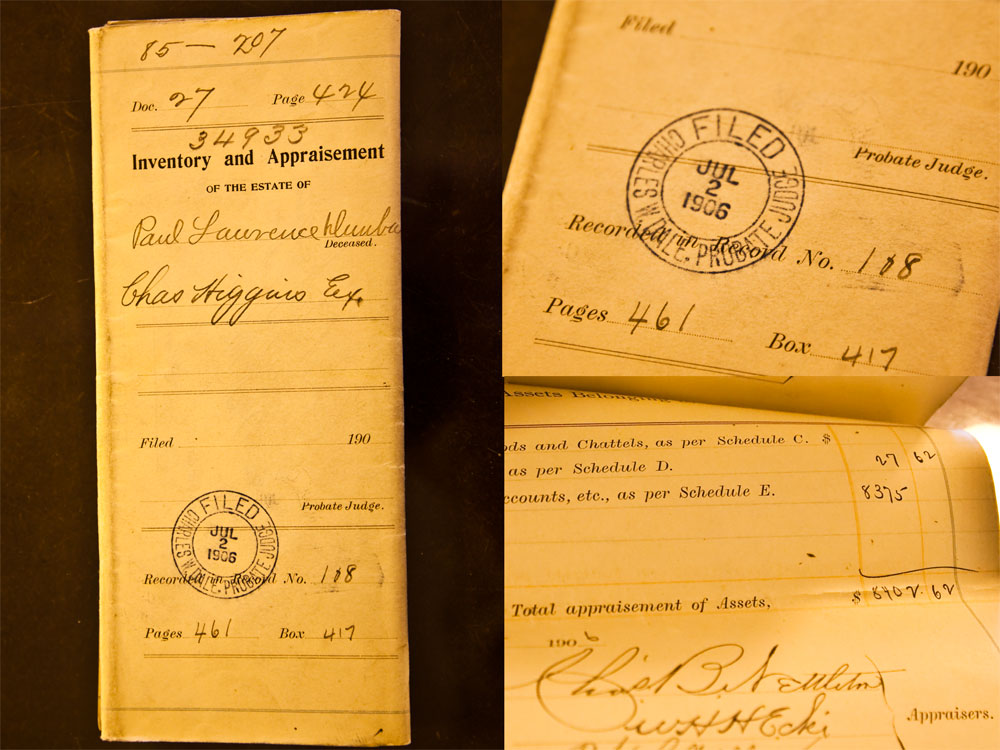 85 — 207
Doc. 27 Page 424
34933
Inventory and Appraisement
OF THE ESTATE OF
Paul Lawrence Dunba
Deceased.
Chas Higgins Ex.
Filed 190
Probate Judge.
FILED
JUL
2
1906
CHARLES W. DALE. PROBATE JUDGE
Recorded in Record No. 108
Pages 461 Box 417
Filed
190
Probate Judge.
FILED
JUL
2
1906
CHARLES W. DALE. PROBATE JUDGE
Recorded in Record No. 108
Pages 461
Box 417
Assets Belonging
ods and Chattels, as per Schedule C. $ 27 62
as per Schedule D.
ccounts, etc., as per Schedule E. 8375
Total appraisement of Assets, $ 8402 62
1906
Chas B. Nettleton
Appraisers.